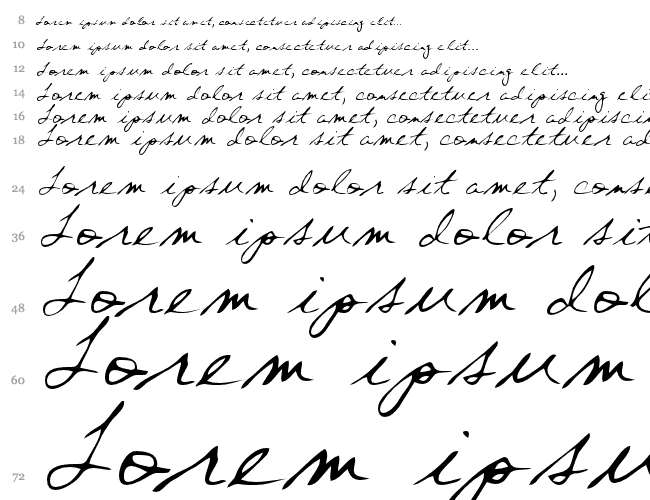 8 Lorem ipsum dolor sit amet, consectetuer adipiscing elit...
10 Lorem ipsum dolor sit amet, consectetuer adipiscing elit...
12 Lorem ipsum dolor sit amet, consectetuer adipiscing elit...
14 Lorem ipsum dolor sit amet, consectetuer adipiscing eli
16 Lorem ipsum dolor sit amet, consectetuer adipiscin
18 Lorem ipsum dolor sit amet, consectetuer ad
24 Lorem ipsum dolor sit amet, conse
36 Lorem ipsum dolor sit
48 Lorem ipsum dol
60 Lorem ipsum
72 Lorem ipsu